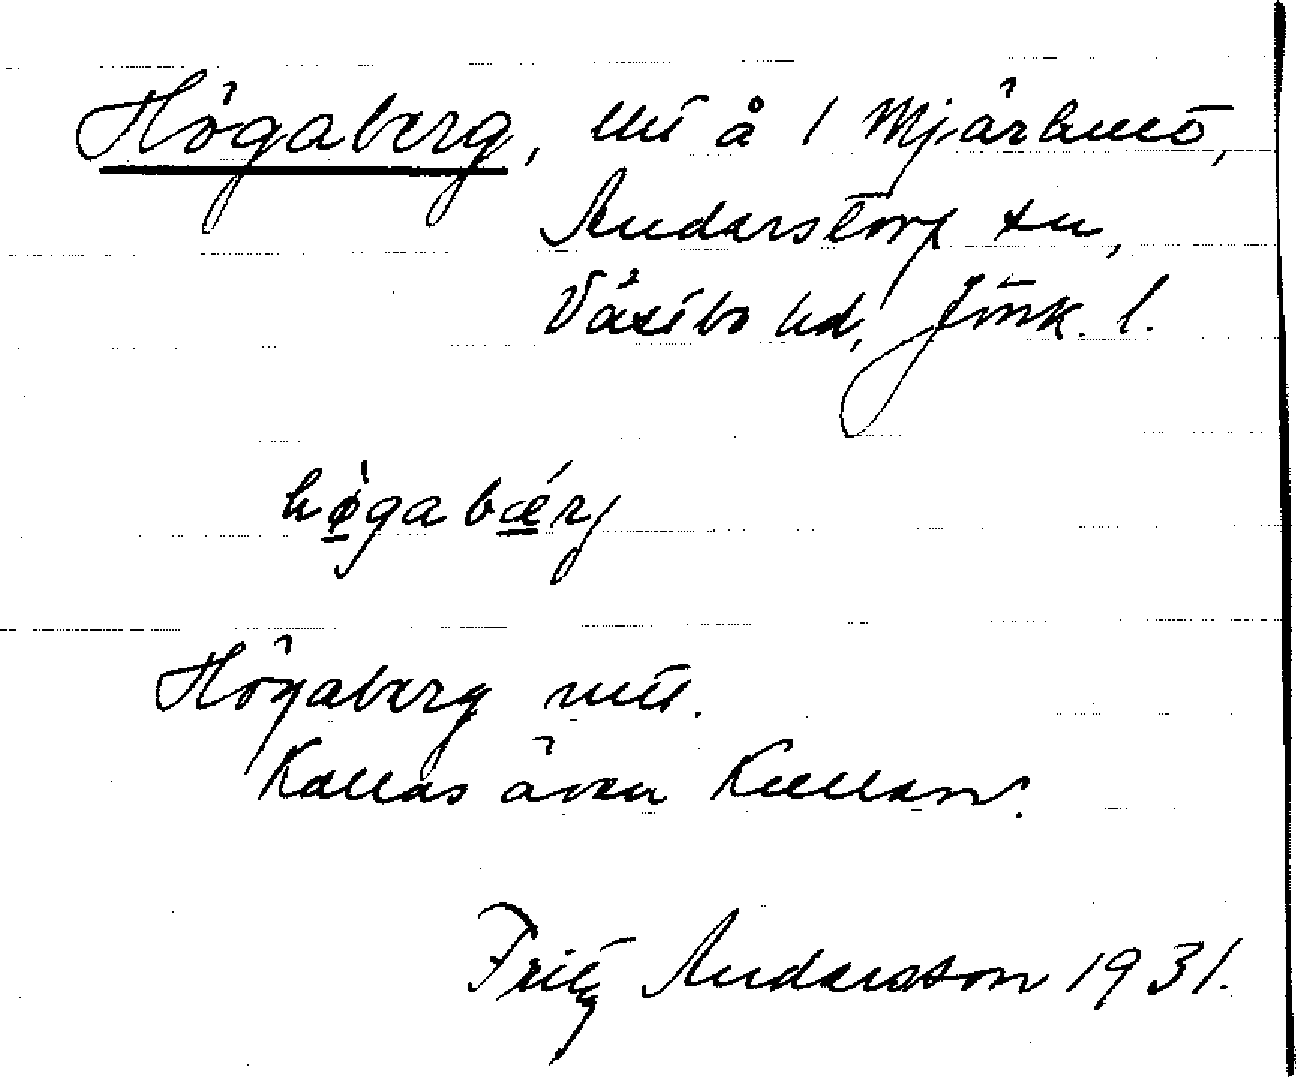 Högaberg, utt å 1 Mjärhult,
Anderstorp sn,
Västbo hd, Jönk. l.
høgabærj
Högaberg utt.
Kallas även Kullen.
Fritz Andersson 1931.